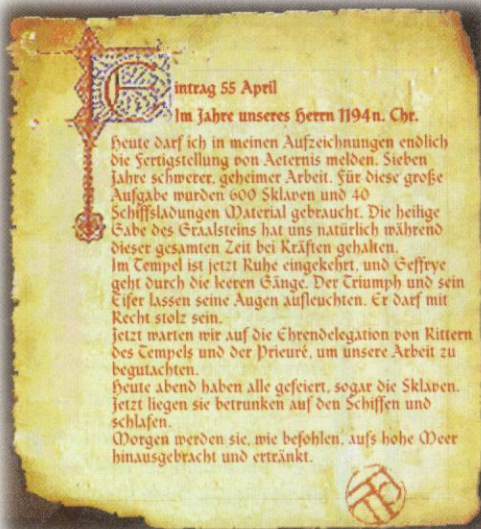 Eintrag 55 April
Im Jahre unseres Herrn 1194 n. Chr.
Heute darf ich in meinen Aufzeichnungen endlich
die Fertigstellung von Aeternis melden. Sieben
Jahre schwerer, geheimer Arbeit. Für diese große
Aufgabe wurden 600 Sklaven und 40
Schiffsladungen Material gebraucht. Die heilige
Gabe des Graalsteins hat uns natürlich während
dieser gesamten Zeit bei Kräften gehalten.
Im Tempel ist jetzt Ruhe eingekehrt, und Geffrye
geht durch die leeren Gänge. Der Triumph und sein
Eifer lassen seine Augen aufleuchten. Er darf mit
Recht stolz sein.
Jetzt warten wir auf die Ehrendelegation von Rittern
des Tempels und der Prieuré, um unsere Arbeit zu
begutachten.
Heute abend haben alle gefeiert, sogar die Sklaven.
Jetzt liegen sie betrunken auf den Schiffen und
schlafen.
Morgen werden sie, wie befohlen, aufs hohe Meer
hinausgebracht und ertränkt.